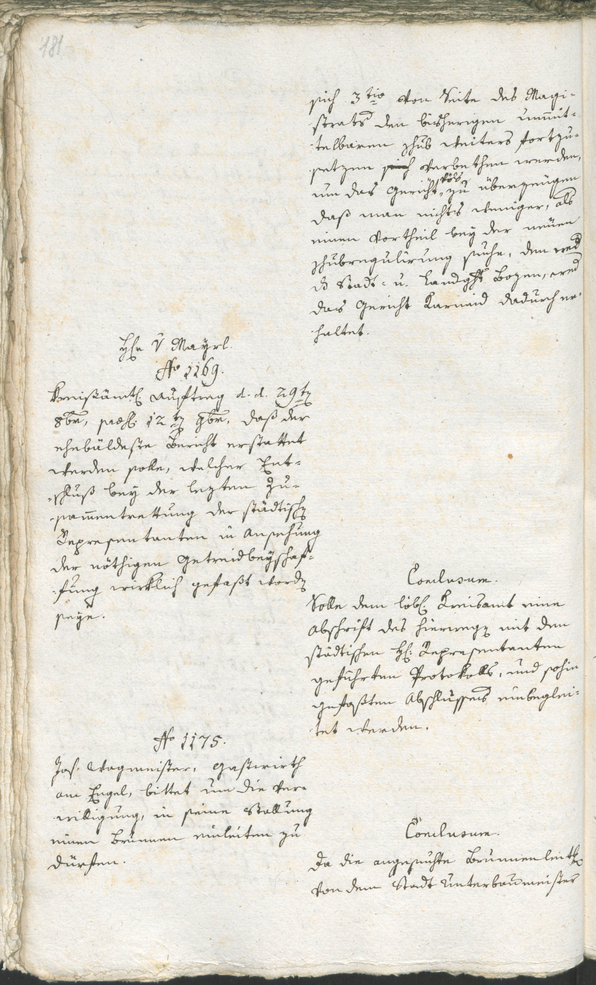 181
sich 3tio von Seite des Magi-
strats den bisherigen unmit-
telbaren Hub weiters fortzu-
setzen verbethen werden,
um das Gericht zu überzeugen
daß man nichts weniger, als
einen Vortheil bey der neuen
Hubregulirung suche, den
Stadt- u. Landght Bozen,
das Gericht Karneid dadurch er-
haltet.
H. v Mayrl.
No 1169.
Kreisämtl. Auftrag d. d. 29t
8br, 12t 9br, daß der
ehebäldeste Bericht erstattet
werden solle, welcher Ent-
schluß bey der lezten Zu-
sammentrettung der städtisch
Repraesentanten in Ansehung
der nöthigen Getreidbeyschaf-
fung wirklich gefaßt word
seye.
Conclusum.
Solle dem löbl. Kreisamt eine
Abschrift des hierweg mit den
städtischen H. Repraesentanten
geführten Protokolls, und sohin
gefaßten Abschlusses einbeglei-
tet werden.
No 1175.
Jos. Wagmeister, Gastwirth
am Engel, bittet um die Ver-
willigung, in seine Stallung
einen Brunnen einleiten zu
dürfen.
Conclusum.
Da die angesuchte Brunnenleit
von dem Stadt Unterbaumeister